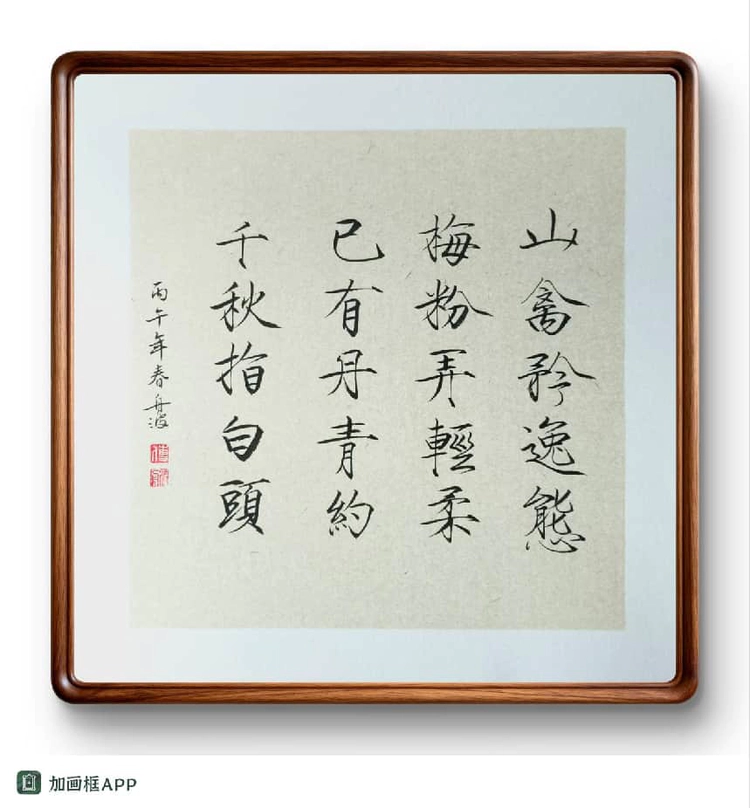 山禽矜逸態
梅粉弄輕柔
已有丹青約
千秋指白頭
丙午年春舟波
加画框APP